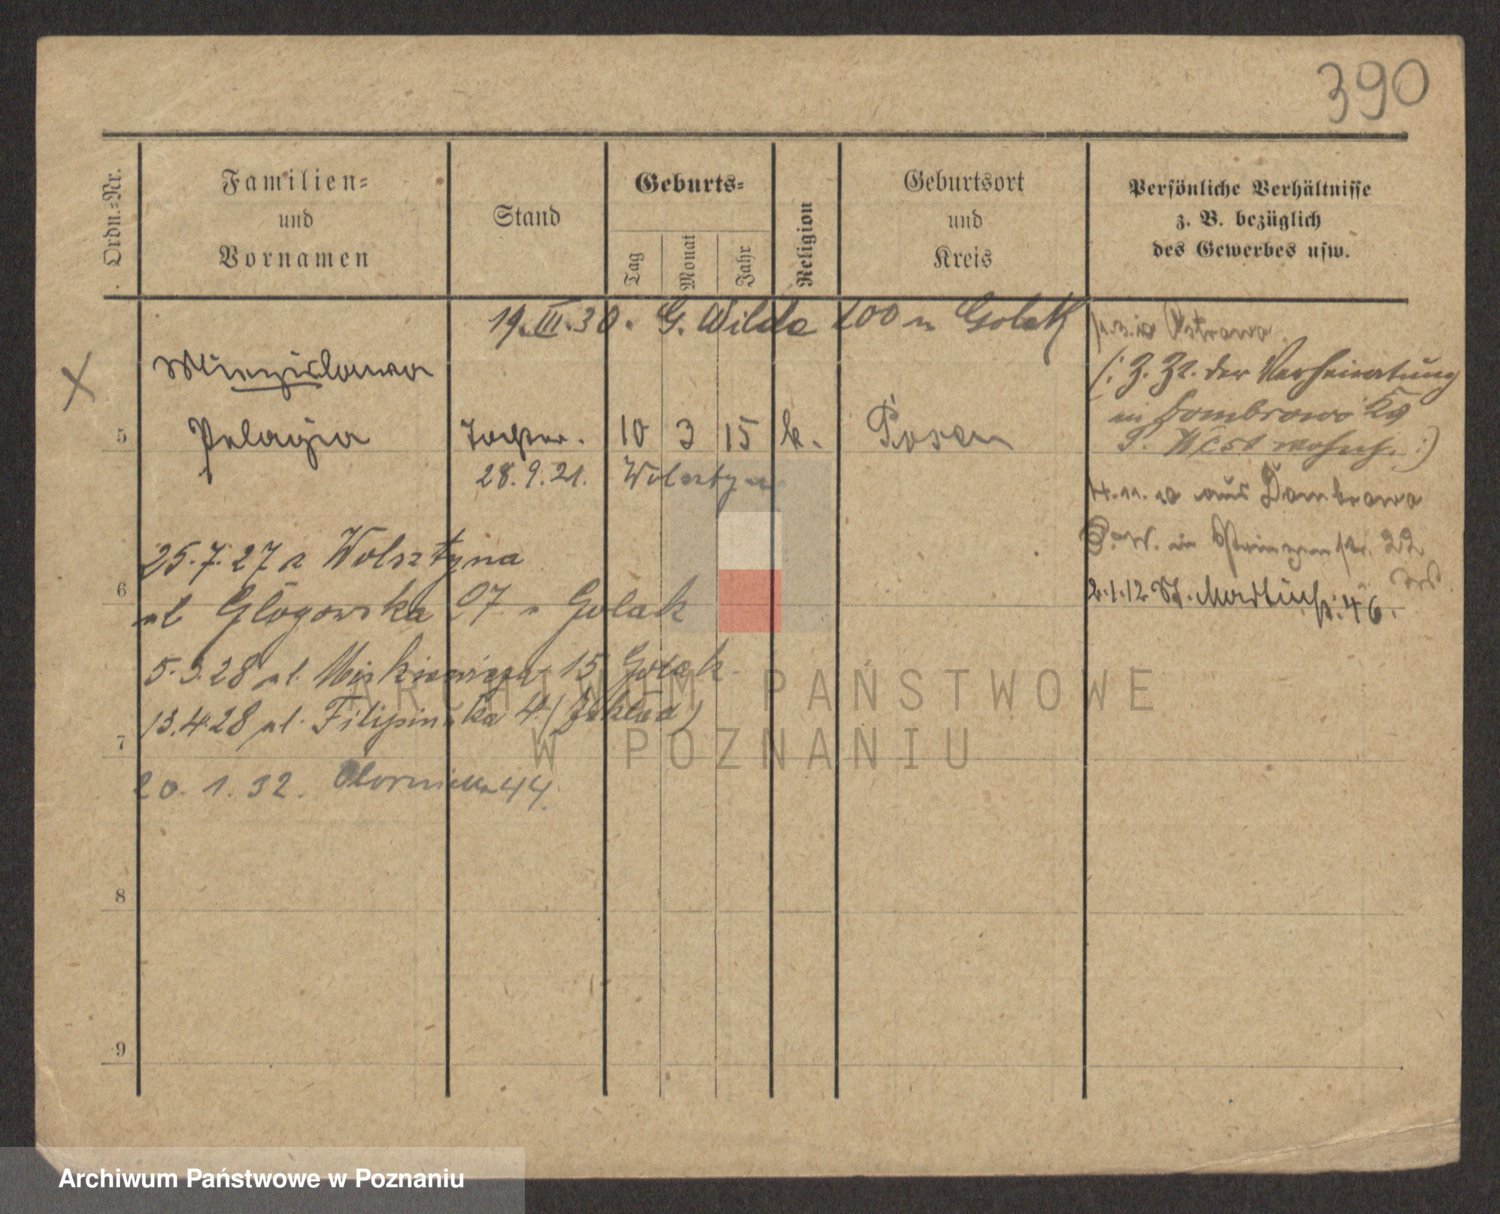 390
Ordn.-Nr.
Familien-
und
Vornamen
Stand
Geburts-
Tag
Monat
Jahr
Religion
Geburtsort
und
Kreis
Persönliche Verhältnisse
z. B. bezüglich
des Gewerbes usw.
19.III.30. G. Wilda 100 u Golak
Ostrowo
(: z. Zt. der Verheiratung
in Dombrowo Kr
P. West wohnh. :)
4.11.10 aus Dombrowo
P. W. in 22
2.1.12 St. Martinstr. 46.
Miezislawa
5 Pelagia Tochter. 10 3 15 k. Posen
28.9.21. Wolsztyn
25.7.27 z Wolsztyna
6
ul Głogowska 97 u Golak
5.3.28 ul. Mickiewicza 15 Golak
13.4.28 ul. Filipińska 4 (Zakład)
7
20.1.32. 44.
8
9
ARCHIWUM PAŃSTWOWE
W POZNANIU
Archiwum Państwowe w Poznaniu